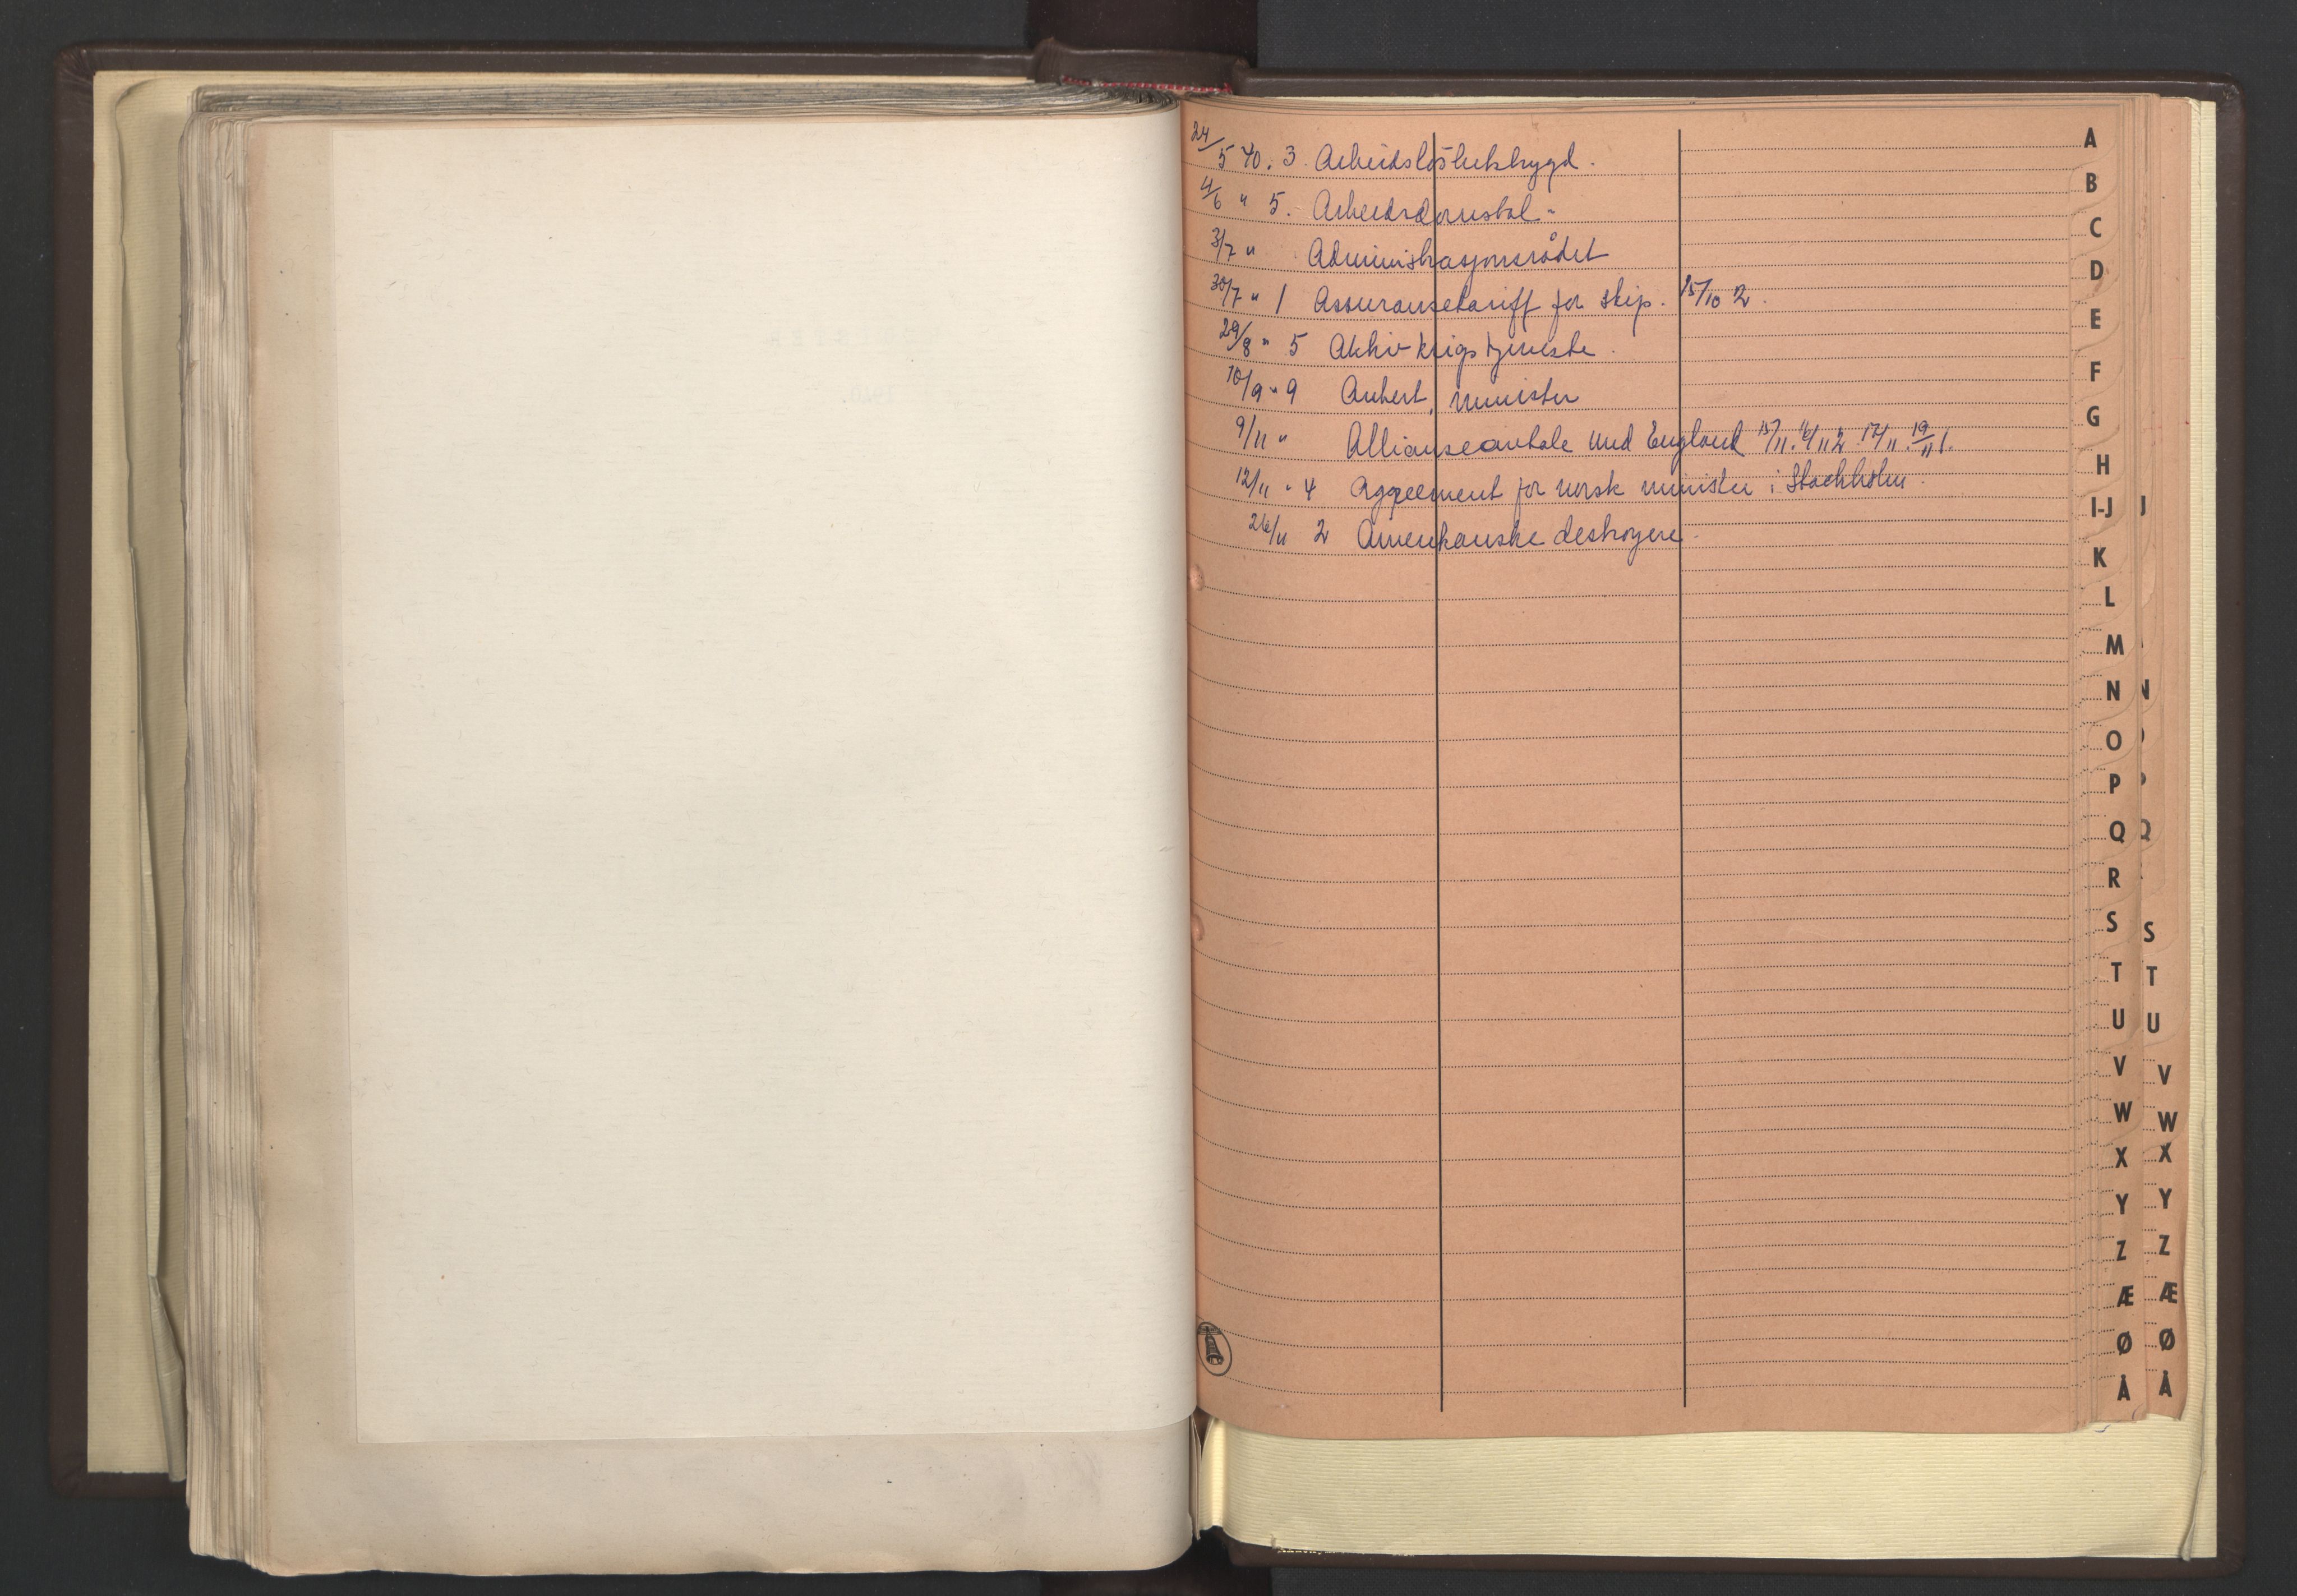 24/5 40. 3. Arbeidsløshetstrygd.
4/6 " 5. Arbeidsdomstol.
3/7 " Administrasjonsrådet
30/7 " 1 Assuransetariff for skip. 15/10 2.
29/8 " 5 Aktiv krigstjeneste.
10/9 " 9 Aubert, minister
9/11 " Allianseavtale med England 15/11. 16/11 2 17/11. 19/11 1.
12/11 " 4 Aggreement for norsk minister i Stockholm.
26/11 2 Amerikanske destroyere.
A
B
C
D
E
F
G
H
I-J J
K
L
M
N N
O
P
Q Q
R
S S
T T
U U
V V
W W
X X
Y Y
Z Z
Æ Æ
Ø Ø
Å Å